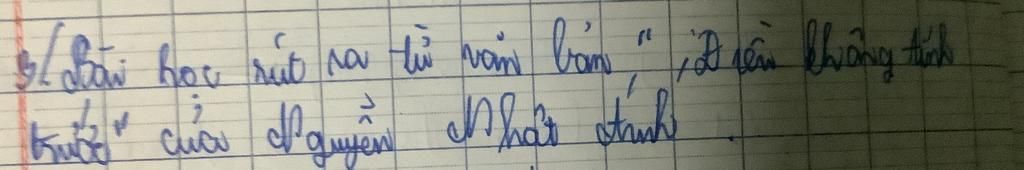 b/ Bài học rút ra từ văn bản " Điều không tính
trước" của Nguyễn Nhật Ánh